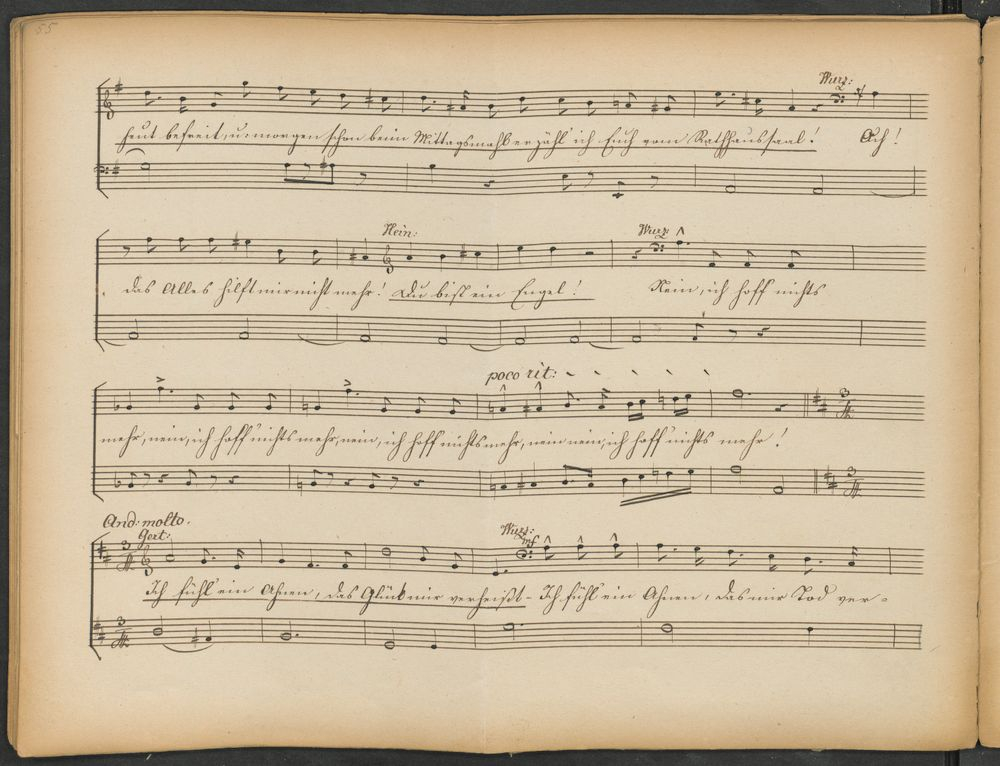 55
Wurz:
heut befreit, u: morgen schon beim Mittagsmahl erzähl' ich Euch vom Rathhaussaal! Ach!
Hein: Wurz
das Alles hilft mir nicht mehr! Du bist ein Engel! Nein, ich hoff nichts
poco rit:
mehr, nein, ich hoff' nichts mehr, nein, ich hoff nichts mehr, nein nein, ich hoff' nichts mehr!
And: molto.
Gert: Wurz: mf
Ich fühl' ein Ahnen, das Glück mir verheißt - Ich fühl' ein Ahnen, das mir Tod ver-